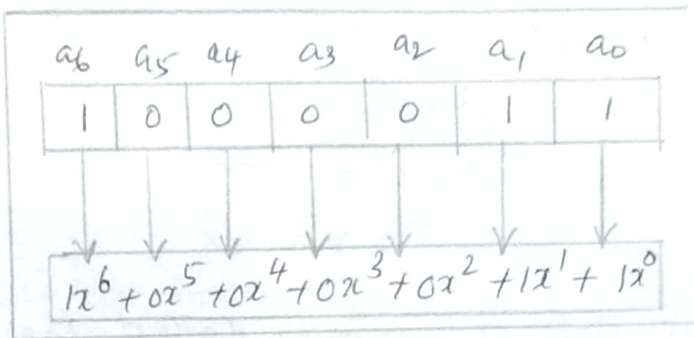 a6 a5 a4 a3 a2 a1 a0
1 0 0 0 0 1 1
1x⁶ + 0x⁵ + 0x⁴ + 0x³ + 0x² + 1x¹ + 1x⁰